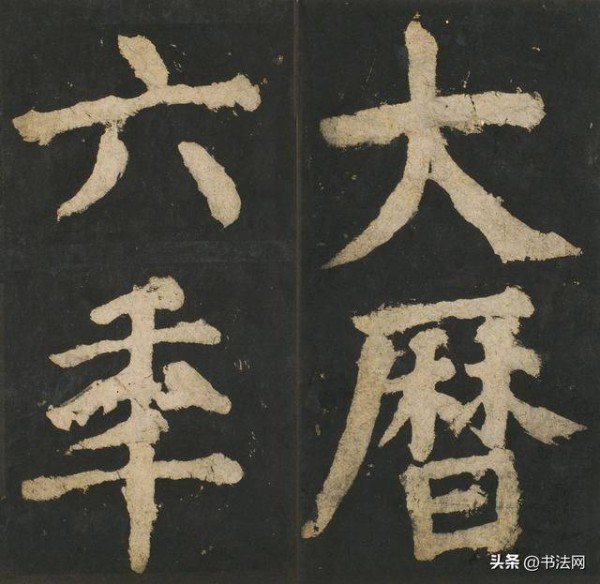 大曆
六秊
头条 @书法网